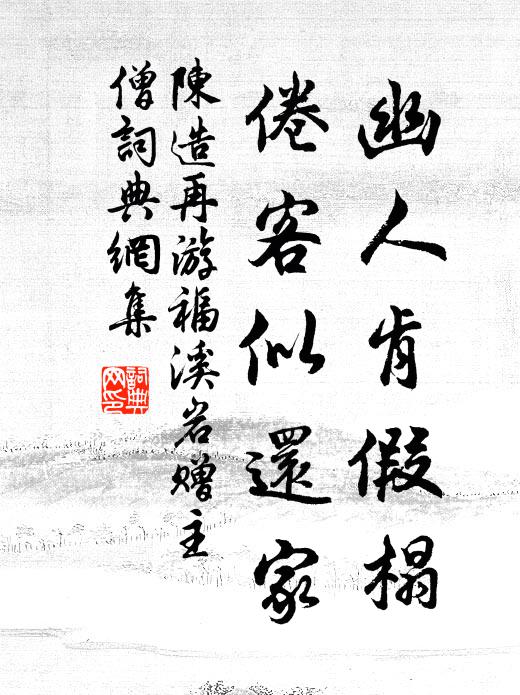 幽人肯假榻
倦客似還家
陳造再游福溪岩贈主
僧詞典網集
詞典
网印